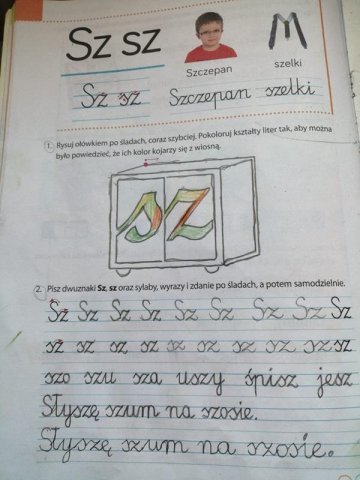 Sz sz
Szczepan
szelki
Sz sz Szczepan szelki
1. Rysuj ołówkiem po śladach, coraz szybciej. Pokoloruj kształty liter tak, aby można
było powiedzieć, że ich kolor kojarzy się z wiosną.
sz
2. Pisz dwuznaki Sz, sz oraz sylaby, wyrazy i zdanie po śladach, a potem samodzielnie.
Sz Sz Sz Sz Sz Sz Sz Sz Sz Sz
sz sz sz sz sz sz sz sz sz sz
szo szu sza uszy śpisz jesz
Słyszę szum na szosie.
Słyszę szum na szosie.